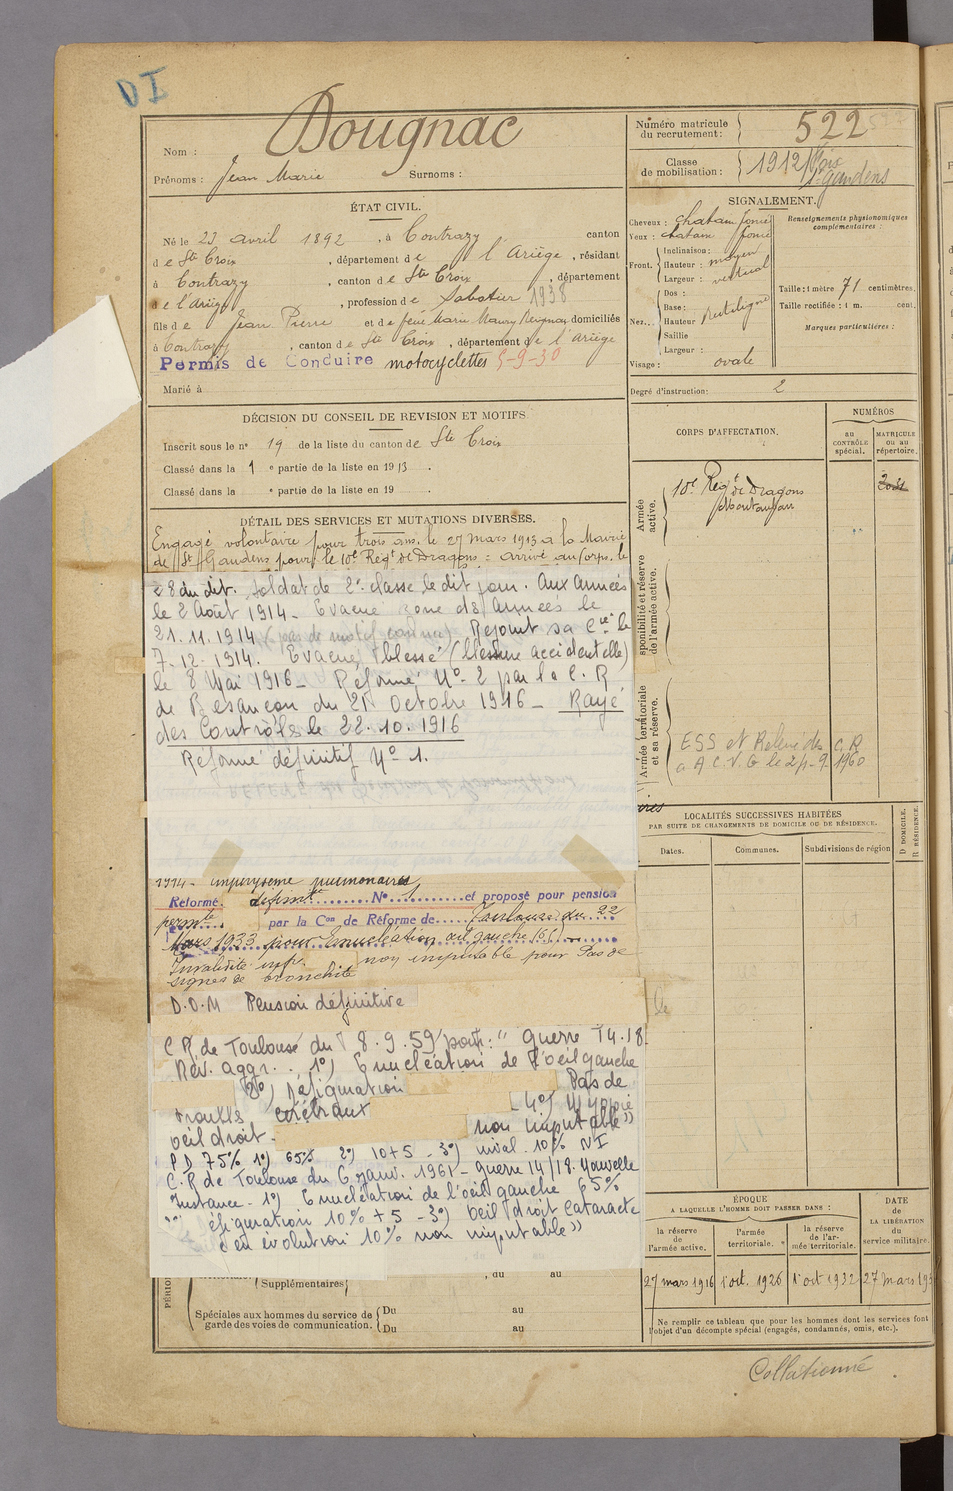 DI
Nom : Dougnac
Prénoms : Jean Marie Surnoms :
Numéro matricule du recrutement : 522
Classe de mobilisation : 1912 Foix
St Gaudens
ÉTAT CIVIL.
Né le 23 avril 1892, à Contrazy canton
de Ste Croix, département de l'Ariège, résidant
à Contrazy, canton de Ste Croix, département
de l'Ariège, profession de Sabotier 1938
fils de Jean Pierre et de feue Marie Maury domiciliés
à Contrazy, canton de Ste Croix, département de l'Ariège
Permis de Conduire motocyclettes 5-9-30
Marié à
SIGNALEMENT.
Cheveux : chatain foncé
Yeux : chatain foncé
Front. Inclinaison :
Hauteur : moyen
Largeur : vertical
Nez... Dos :
Base :
Hauteur Rectiligne
Saillie
Largeur :
Visage : ovale
Renseignements physionomiques complémentaires :
Taille : 1 mètre 71 centimètres.
Taille rectifiée : 1 m. cent.
Marques particulières :
Degré d'instruction : 2
DÉCISION DU CONSEIL DE REVISION ET MOTIFS
Inscrit sous le n° 19 de la liste du canton de Ste Croix
Classé dans la 1 e partie de la liste en 1913.
Classé dans la e partie de la liste en 19 .
CORPS D'AFFECTATION.
NUMÉROS
au CONTRÔLE spécial.
MATRICULE ou au répertoire.
Armée active.
10e Regt de Dragons
Montauban
sponibilité et réserve de l'armée active.
Armée territoriale et sa réserve.
ESS et Relevé des C.R
a A.C.V.G le 2 1960
DÉTAIL DES SERVICES ET MUTATIONS DIVERSES.
Engagé volontaire pour trois ans, le 27 mars 1913 a la Mairie
de St Gaudens pour le 10e Regt de Dragons : arrivé au corps, le
28 du dit. Soldat de 2e classe le dit jour. Aux Armées
le 2 Août 1914 - Evacué zone des Armées le
21.11.1914 (pas de motif connu) Rejoint sa Cie le
7.12.1914. Evacué blessé (blessure accidentelle)
le 8 Mai 1916 - Réformé N° 2 par la C.R
de Besançon du 21 Octobre 1916 - Rayé
des Contrôles le 22.10.1916
Réformé définitif N° 1.
1914 - emphysème pulmonaires
Réformé définitt N° 1 et proposé pour pension
permte par la Con de Réforme de Toulouse du 22
Mars 1933 pour Enucléation œil gauche
Invalidité inf. non imputable pour Pas de
signes de bronchite
D.O.M Pension définitive
C.R de Toulouse du 8.9.59 pour : " guerre 14.18
Rév. aggr. . 1°) Enucléation de l'oeil gauche
2°) défiguration Pas de
troubles cérébraux 4°) Myopie
oeil droit. non imputable"
P D 75% 1°) 65% 2°) 10+5 - 3°) inval. 10% N I
C.R de Toulouse du 6 janv. 1961 - guerre 14/18. Nouvelle
Instance - 1°) Enucléation de l'oeil gauche 65%
défiguration 10% + 5 - 3°) Oeil droit Cataracte
en évolution 10% non imputable"
LOCALITÉS SUCCESSIVES HABITÉES
PAR SUITE DE CHANGEMENTS DE DOMICILE OU DE RÉSIDENCE.
Dates. Communes. Subdivisions de région
D DOMICILE.
R RÉSIDENCE.
ÉPOQUE
A LAQUELLE L'HOMME DOIT PASSER DANS :
la réserve de l'armée active.
l'armée territoriale.
la réserve de l'armée territoriale.
DATE de LA LIBÉRATION du service militaire.
27 mars 1916 1er oct. 1926 1er oct 1932 27 mars 193
Supplémentaires , du au
Spéciales aux hommes du service de garde des voies de communication. Du au
Du au
Ne remplir ce tableau que pour les hommes dont les services font
l'objet d'un décompte spécial (engagés, condamnés, omis, etc.).
Collationné